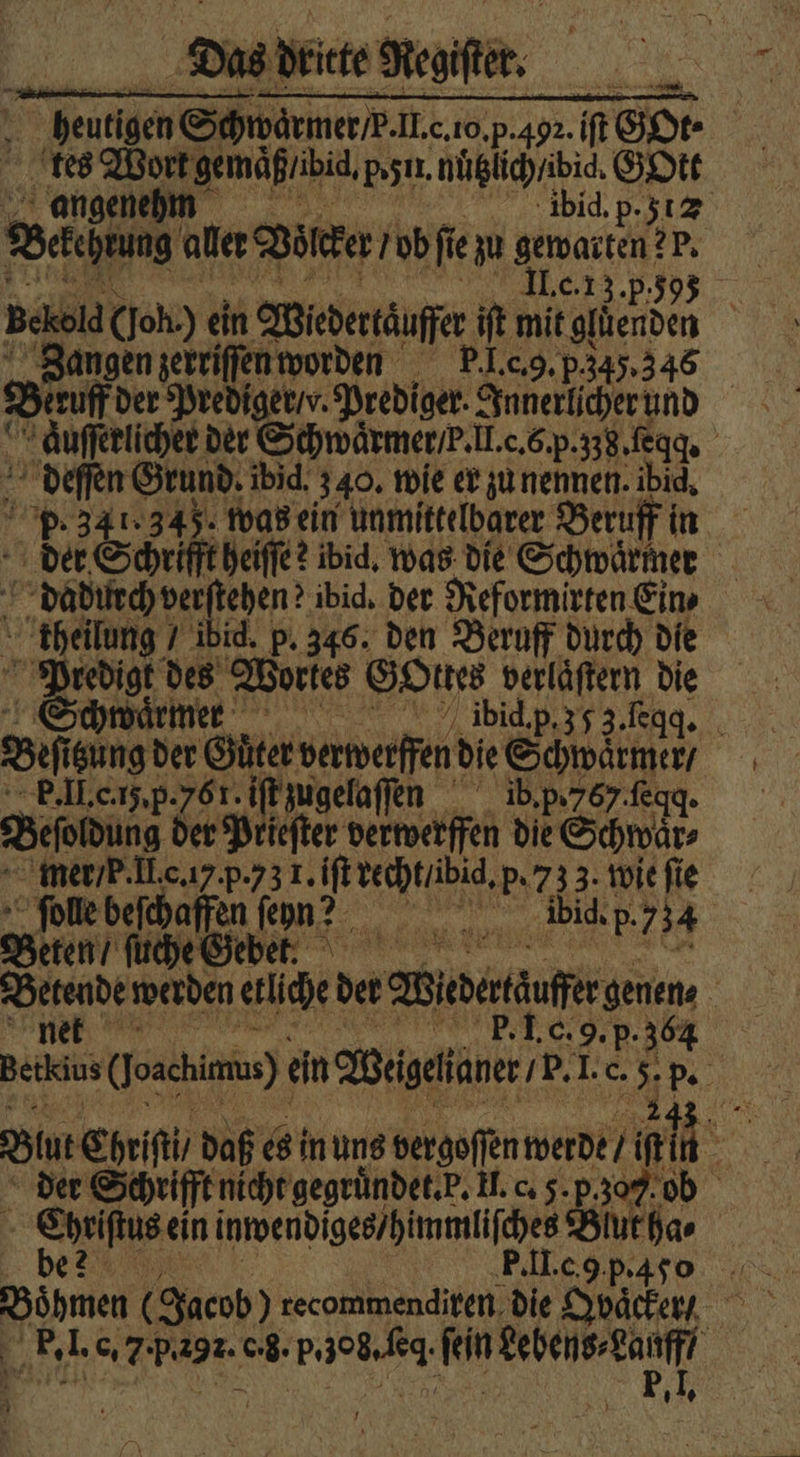 Das dritte Regiſter.
heutigen Schwaͤrmer/P.II.c.10.p.492. iſt GOt-
tes Wort gemaͤß/ibid. p.511. nuͤtzlich/ibid. GOtt
angenehm ibid. p. 512
Bekehrung aller Voͤlcker / ob ſie zu gewarten? P.
II.c.13.p.595
Bekold (Joh.) ein Wiedertaͤuffer iſt mit gluͤenden
Zangen zerriſſen worden P.I.c.9. p.345.346
Beruff der Prediger/v. Prediger. Innerlicher und
aͤuſſerlicher der Schwaͤrmer/P.II.c.6.p.338.ſeqq.
deſſen Grund. ibid. 340. wie er zu nennen. ibid.
p. 341. 345. was ein unmittelbarer Beruff in
der Schrifft heiſſe? ibid. was die Schwaͤrmer
dadurch verſtehen? ibid. der Reformirten Ein-
theilung / ibid. p. 346. den Beruff durch die
Predigt des Wortes GOttes verlaͤſtern die
Schwaͤrmer / ibid.p.353.ſeqq.
Beſitzung der Guͤter verwerffen die Schwaͤrmer/
P.II.c.15.p.761. iſt zugelaſſen ib.p.767.ſeqq.
Beſoldung der Prieſter verwerffen die Schwaͤr-
mer/P.II.c.17.p.731. iſt recht/ibid. p. 733. wie ſie
ſolle beſchaffen ſeyn? ibid. p. 734
Beten / ſuche Gebet.
Betende werden etliche der Wiedertaͤuffer genen-
net P. I. c. 9. p. 364
Betkius (Joachimus) ein Weigelianer / P. I. c. 5. p.
243.
Blut Chriſti/ daß es in uns vergoſſen werde / iſt in
der Schrifft nicht gegruͤndet. P. II. c. 5. p.307. ob
Chriſtus ein inwendiges/himmliſches Blut ha-
be? P.II.c.9.p.450
Boͤhmen (Jacob) recommendiren die Qvaͤcker/
P. I. c. 7. p.292. c.8. p.308.ſeq. ſein Lebens-Lauff/
P. I.